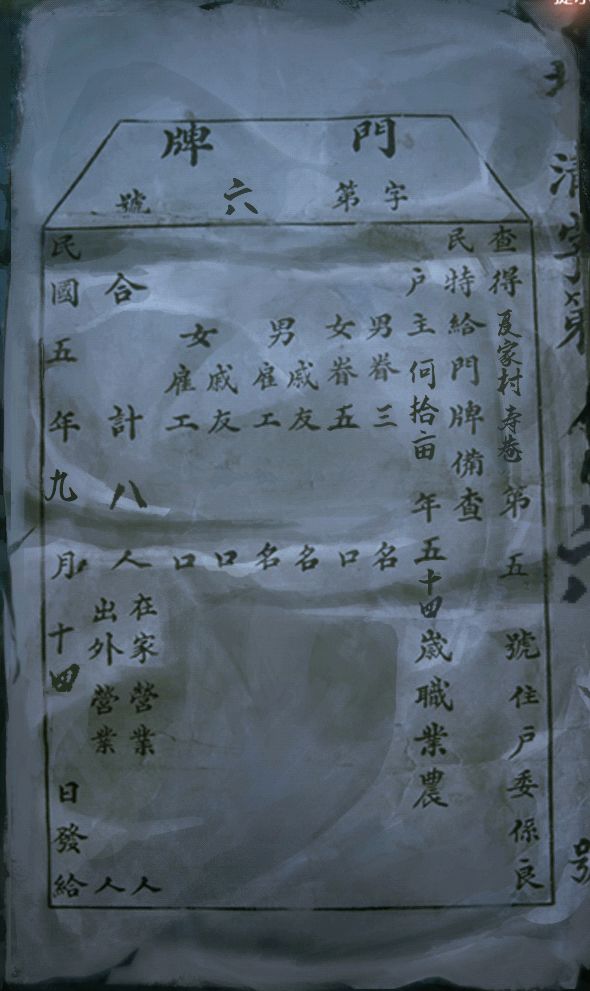 門牌
字第六號
查得夏家村寿巷第五號住戶委係良
民特給門牌備查
戶主何拾亩年五十四歲職業農
男眷三名
女眷五口
男戚友名
雇工名
女戚友口
雇工口
合計八人
在家營業人
出外營業人
民國五年九月十四日發給